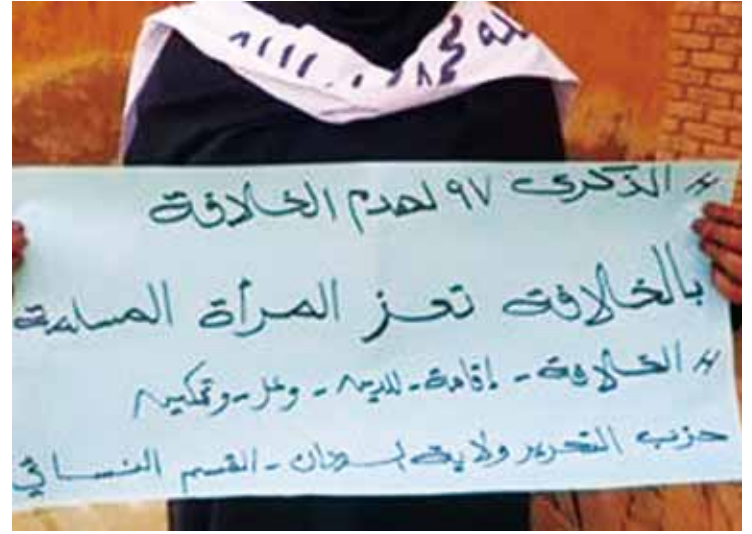 الله محمد الله
# الذكرى ٩٧ لهدم الخلافة
بالخلافة تعز المرأة المسلمة
# الخلافة - إقامة - للدين - وعز - وتمكين
حزب التحرير ولاية السودان - القسم النسائي